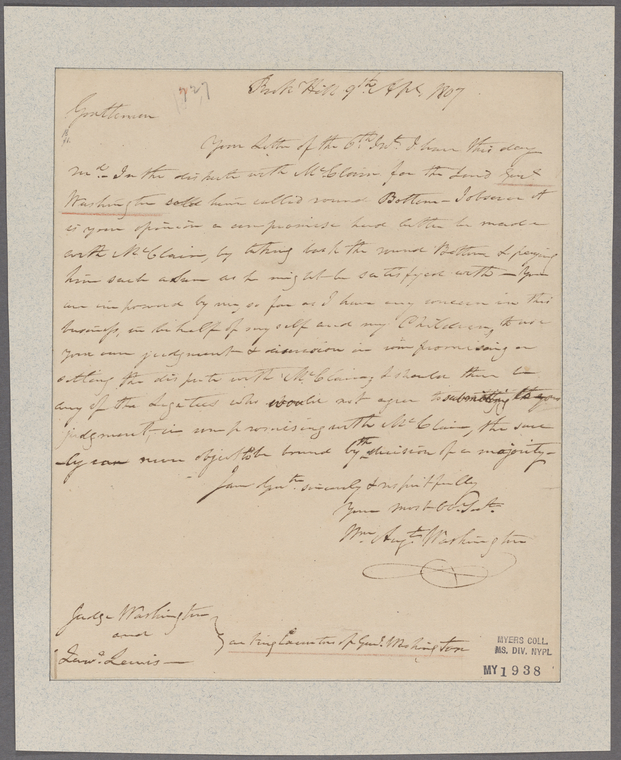 Rock Hill 9th Apl. 1807
Gentlemen
Your Letter of the 6th Inst. I have this day
recd. In the dispute with McClain for the Land Genl.
Washington sold him called round Bottom – I observe it
is your opinion a compromise had better be made
with McClain, by taking back the round Bottom & paying
him such a sum as he might be satisfyed with – You
are impowred by me so far as I have any concern in this
business, in behalf of my self and my Children, to use
your own judgment & discission in compromising or
settling the dispute with McClain, & should there be
any of the Legatees who would not agree to submitting to your
judgment, in compromising with McClain, the same
can never object to be bound by the decision of a majority –
I am Gentn. sincerely & respectfully
Your most Ob. St.
Wm. Augt. Washington
Judge Washington
and
Lawe. Lewis –
acting Executors of Genl. Washington
MYERS COLL.
MS. DIV. NYPL
MY 1938